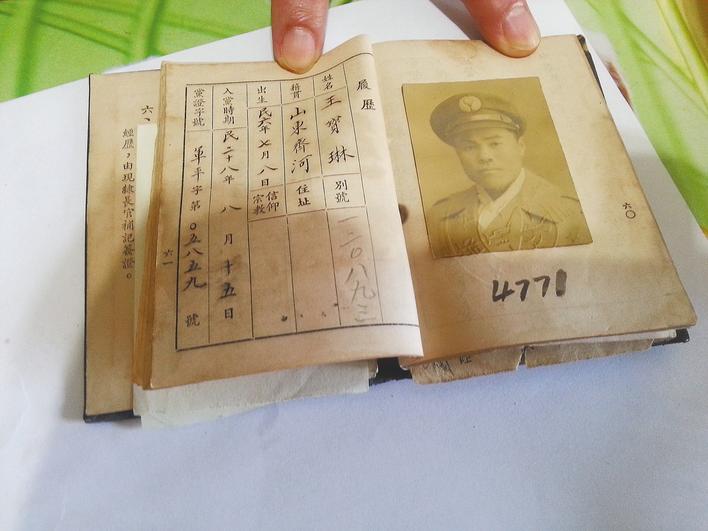 六〇
4771
履歷
姓名 王寶琳 別號 一二〇八九三
籍貫 山東齊河 住址
出生 民六年七月八日 信仰宗教
入黨時期 民二十八年 八 月 十五日
黨證字號 軍平字第〇五八五九 號
六一
六、
經歷,由現隸長官補記簽證。